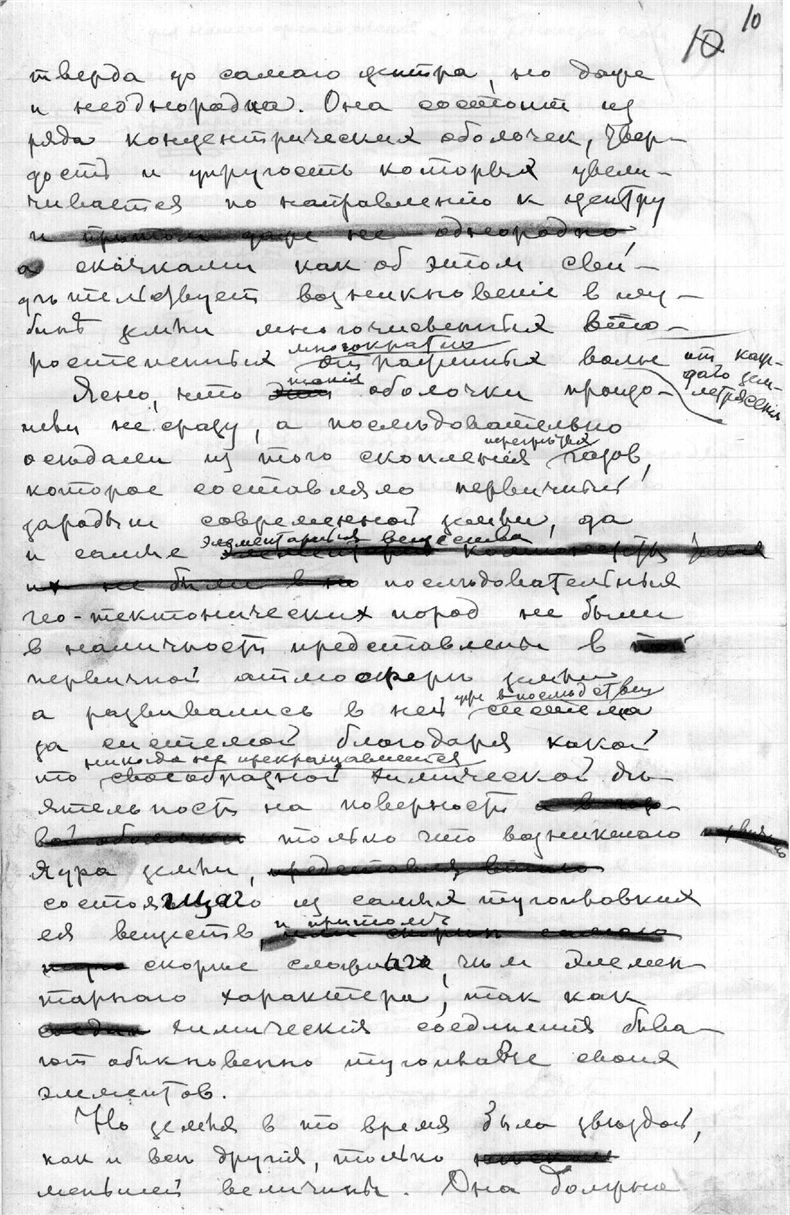 10
10
тверда до самаго центра, но даже
и неоднородна. Она состоит из
ряда концентрических оболочек, твер-
дость и упругость которых увели-
чивается по направлению к центру
и притом даже не однородно,
а скачками как об этом сви-
дѣтельствует возникновение в глу-
бинѣ земли многочисленных вто-
ростепенных многократно отраженных волн от каж-
даго зем-
летрясенія
Ясно, что такія оболочки произо-
шли не сразу, а последовательно
оседали из того скопления газов,
которое составляло первичный
зародыш современной земли, да
и самые элементарныя вещества
их не были в но последовательных
гео-тектонических пород не были
в наличности представлены в
первичной атмосферы земли
а развивались в ней уже впоследствіи система
за системой благодаря какой
то никогда не прекращавшейся своеобразной химической дѣ-
ятельности на поверности
вой оболочки только что возникшаго
ядра земли,
состоящаго из самых тугоплавких
ея веществ и притомъ
скорѣе сложнаго, чѣм элемен
тарнаго характера, так как
химическія соединенія быва-
ют обыкновенно тугоплавче своих
элементов.
Но земля в то время была звѣздой,
как и всѣ другія, только
меньшей величины. Она должна